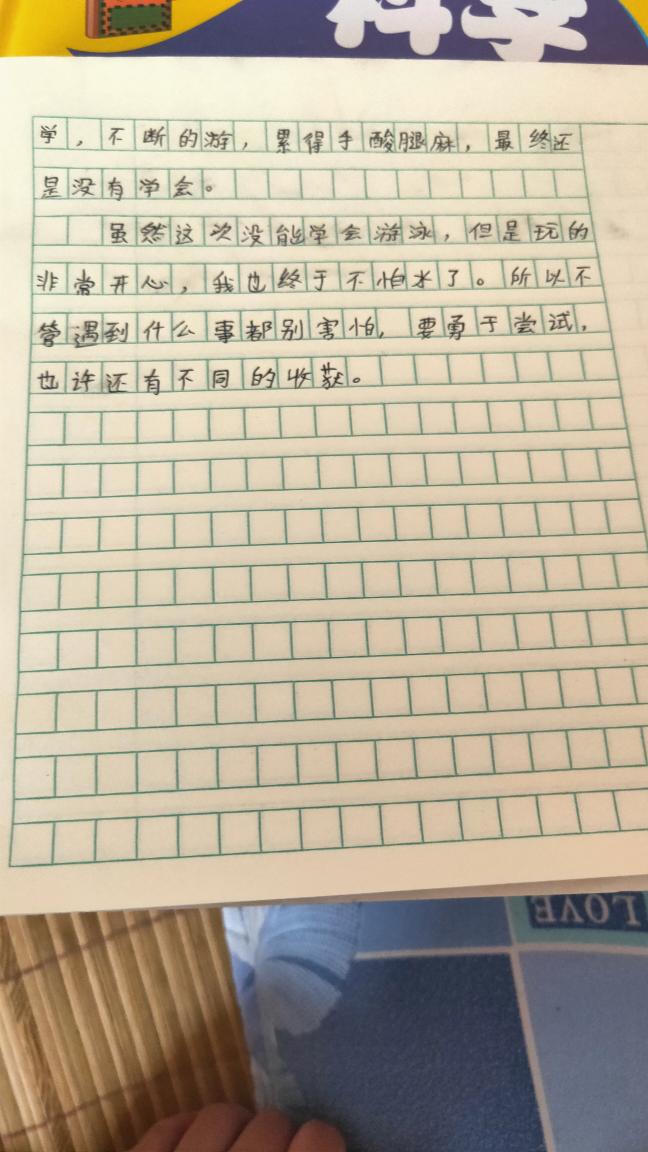 科学
学，不断的游，累得手酸腿麻，最终还
是没有学会。
虽然这次没能学会游泳，但是玩的
非常开心，我也终于不怕水了。所以不
管遇到什么事都别害怕，要勇于尝试，
也许还有不同的收获。
LOVE